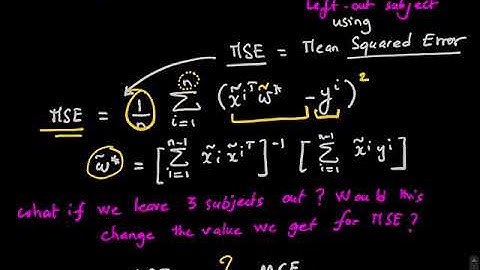 Left-out subject
using
MSE = Mean Squared Error
MSE = 1/n n∑i=1 (x̃ⁱᵀ w̃* - yⁱ)²
w̃* = [n-1∑i=1 x̃ⁱ x̃ⁱᵀ]⁻¹ [n-1∑i=1 x̃ⁱ yⁱ]
what if we leave 3 subjects out? Would this
change the value we get for MSE?
? MSE